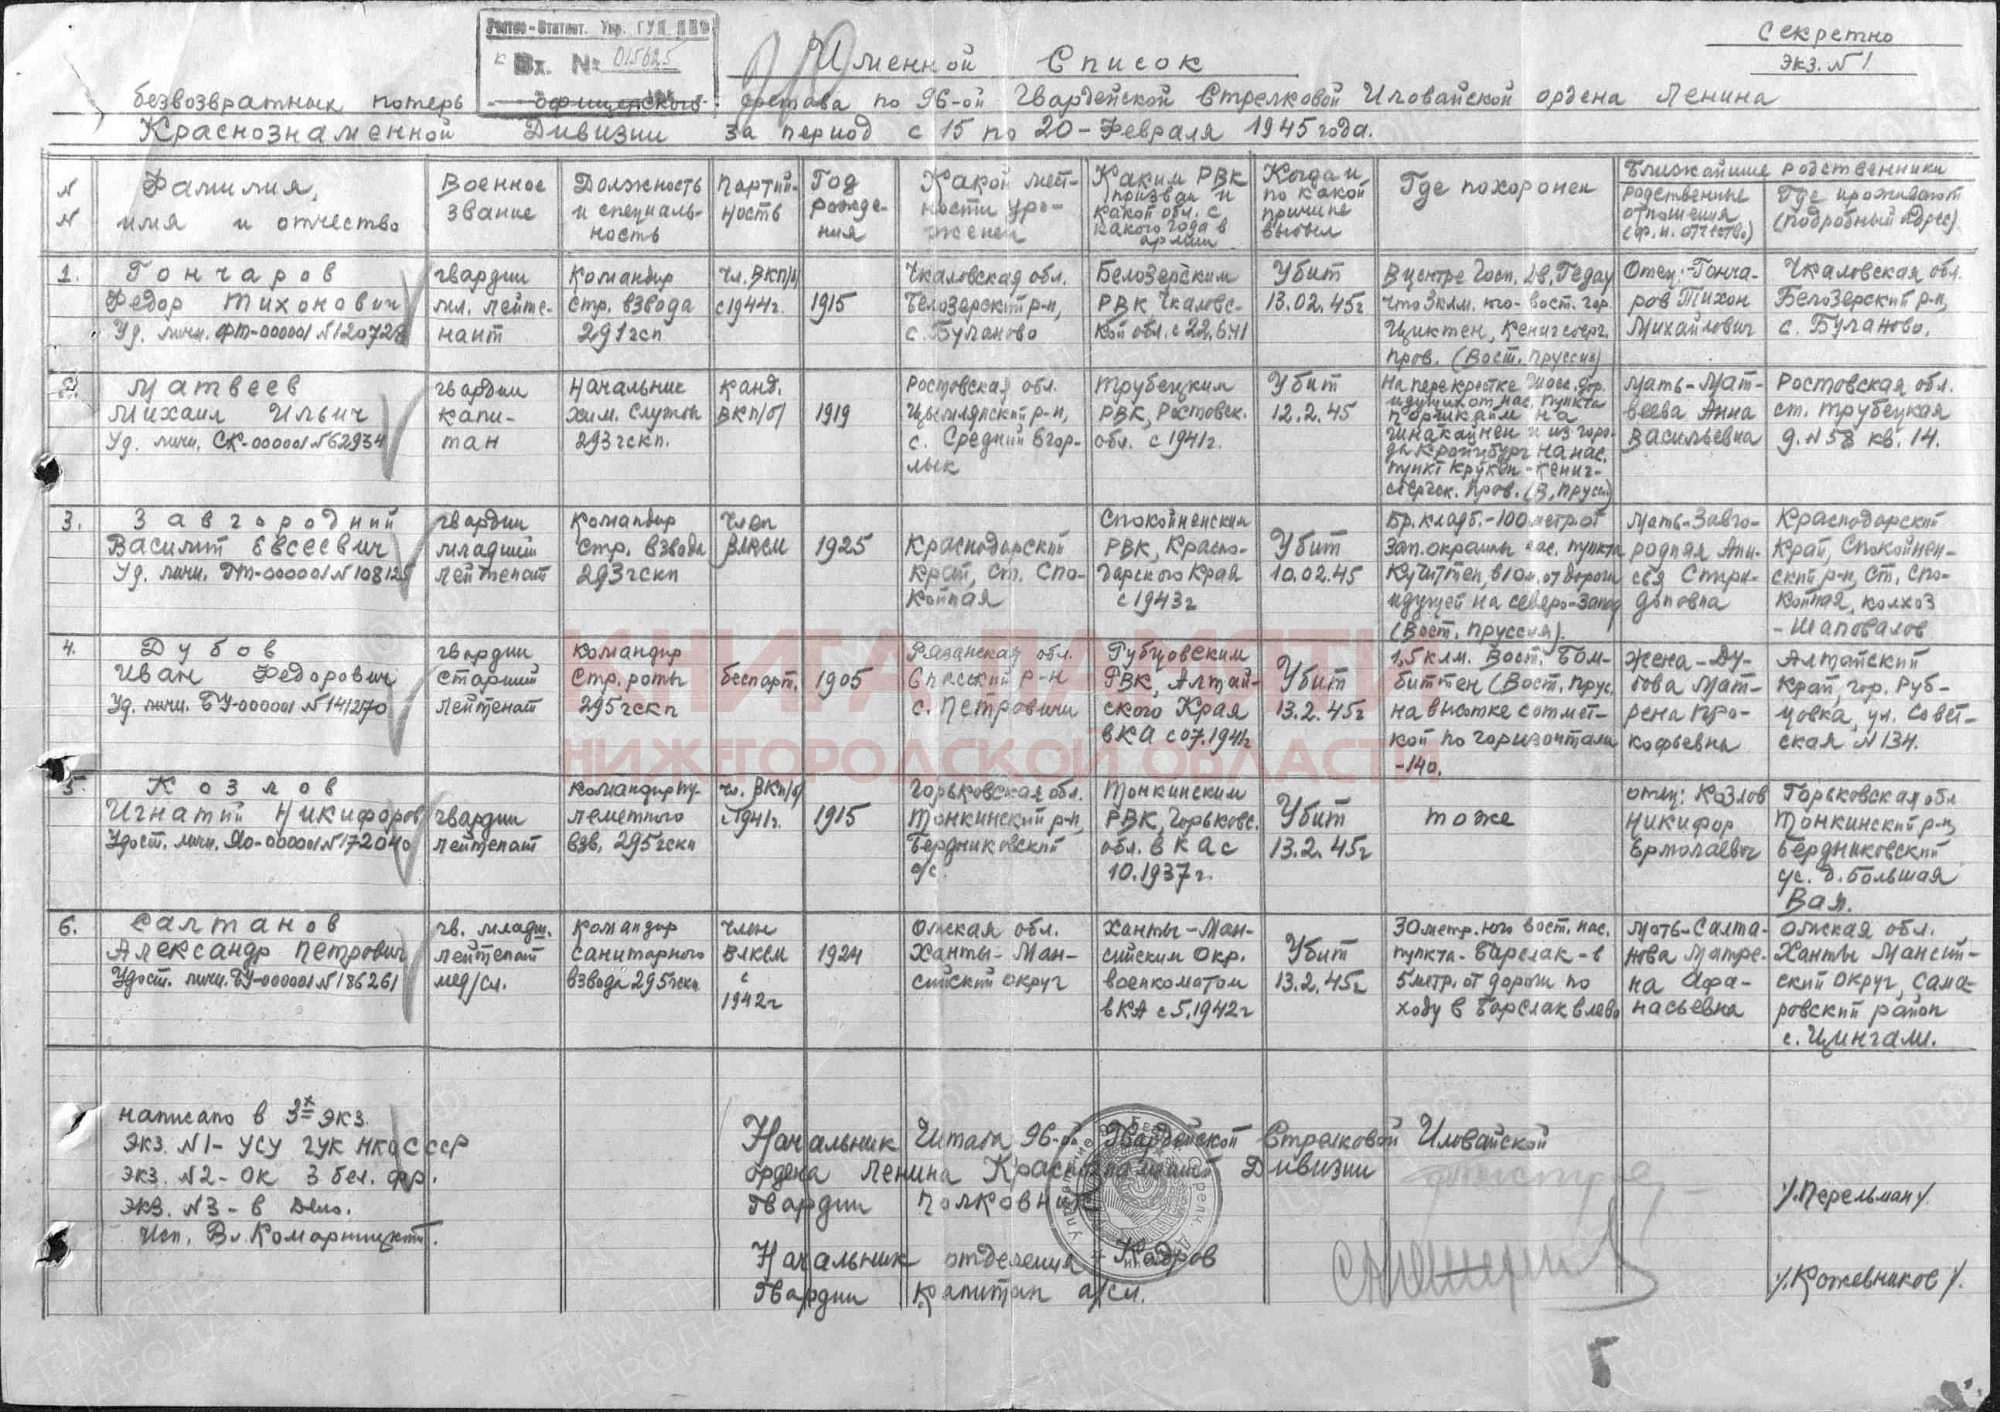 Секретно
экз. №1
Вх. № 015625
Именной Список
безвозвратных потерь офицерского состава по 96-ой Гвардейской Стрелковой Иловайской ордена Ленина
Краснознаменной Дивизии за период с 15 по 20-Февраля 1945 года.
N N
Фамилия, имя и отчество
Военное звание
Должность и специальность
Партийность
Год рождения
Какой местности уроженец
Каким РВК призван и какой обл. с какого года в армии
Когда и по какой причине выбыл
Где похоронен
Ближайшие родственники
родственные отношения (ф. и. отчество)
Где проживают (подробный адрес)
1.
Гончаров
Федор Тихонович
Уд. личн. ФТ-000001 №120728
гвардии
мл. лейте-
нант
Командир
стр. взвода
291 гсп
Чл. ВКП/б/
с 1944г.
1915
Чкаловская обл.
Белозерский р-н,
с. Буланово
Белозерским
РВК Чкаловс-
кой обл. с 22.6.41
Убит
13.02.45г
В центре Госп. Дв. Гедау
что 3 клм. юго-вост. гор.
Цинтен, Кенигсберг.
пров. (Вост. Пруссия)
Отец:-Гонча-
ров Тихон
Михайлович
Чкаловская обл.
Белозерский р-н,
с. Буланово.
2.
Матвеев
Михаил Ильич
Уд. личн. СК-000001 №62934
гвардии
капи-
тан
Начальник
хим. службы
293 гскп.
канд.
ВКП/б/
1919
Ростовская обл.
Цымлянский р-н,
с. Средний Егор-
лык
Трубецким
РВК, Ростовск.
обл. с 1941г.
Убит
12.2.45
На перекрестке шосс. дор.
идущих от нас. пункта
на
и из горо-
да Кройцбург на нас.
пункт Крукен-Кениг-
сбергск. пров. (В. Пруссия)
Мать-Мат-
веева Анна
Васильевна
Ростовская обл.
ст. Трубецкая
д. №58 кв. 14.
3.
Завгородний
Василий Евсеевич
Уд. личн. ДТ-000001 №108125
гвардии
младший
лейтенант
Командир
стр. взвода
293 гскп
Член
ВЛКСМ
1925
Краснодарский
Край, ст. Спо-
койная
Спокойненским
РВК, Красно-
дарского Края
с 1943г
Убит
10.02.45
Бр. кладб.-100 метр. от
зап. окраины нас. пункта
Кучиттен, в 10 м. от дороги
идущей на северо-запад
(Вост. Пруссия).
Мать-Завго-
родняя Ани-
сья Спири-
доновна
Краснодарский
Край, Спокойнен-
ский р-н, ст. Спо-
койная, колхоз
-Шаповалов
4.
Дубов
Иван Федорович
Уд. личн. БУ-000001 №141270
гвардии
старший
лейтенант
Командир
стр. роты
295 гскп
беспарт.
1905
Рязанская обл.
Спасский р-н
с. Петровичи
Рубцовским
РВК, Алтай-
ского Края
в КА с 07.1941г
Убит
13.2.45г
1,5 клм. Вост. Бом-
биттен (Вост. Прус.
на высотке с отмет-
кой по горизонтали
-140.
жена-Ду-
бова Мат-
рена Про-
кофьевна
Алтайский
Край, гор. Руб-
цовка, ул. Совет-
ская №134.
5.
Козлов
Игнатий Никифоров
Удост. личн. ЯО-000001 №172040
гвардии
лейтенант
Командир пу-
леметного
взв. 295 гскп
чл. ВКП/б/
с 1941г.
1915
Горьковская обл.
Тонкинский р-н,
Бердниковский
с/с.
Тонкинским
РВК, Горьковс.
обл. в КА с
10.1937г.
Убит
13.2.45г
тоже
отец: Козлов
Никифор
Ермолаевич
Горьковская обл
Тонкинский р-н,
Бердниковский
с/с. д. Большая
Вая.
6.
Салтанов
Александр Петрович
Удост. личн. БУ-000001 №186261
гв. младш.
лейтенант
мед/сл.
Командир
санитарного
взвода 295 гскп
член
ВЛКСМ
с
1942г
1924
Омская обл.
Ханты-Ман-
сийский округ
Ханты-Ман-
сийским Окр.
военкоматом
в КА с 5.1942г
Убит
13.2.45г
30 метр. юго вост. нас.
пункта-Барслак-в
5 метр. от дороги по
ходу в Барслак влево
мать-Салта-
нова Матре-
на Афа-
насьевна
Омская обл.
Ханты Мансий-
ский округ, Сама-
ровский район
с. Цингалы.
написано в 3х экз.
экз. №1-УСУ ГУК НКО СССР
экз. №2-ОК 3 бел. фр.
экз. №3-в Дело.
Исп. Вл. Комарницкий.
Начальник Штаба 96-ой Гвардейской Стрелковой Иловайской
ордена Ленина Краснознаменной Дивизии
Гвардии Полковник
/Перельман/.
Начальник отделения Кадров
Гвардии Капитан а/сл.
/Кожевников/.
КНИГА ПАМЯТИ
НИЖЕГОРОДСКОЙ ОБЛАСТИ
ПАМЯТЬ НАРОДА